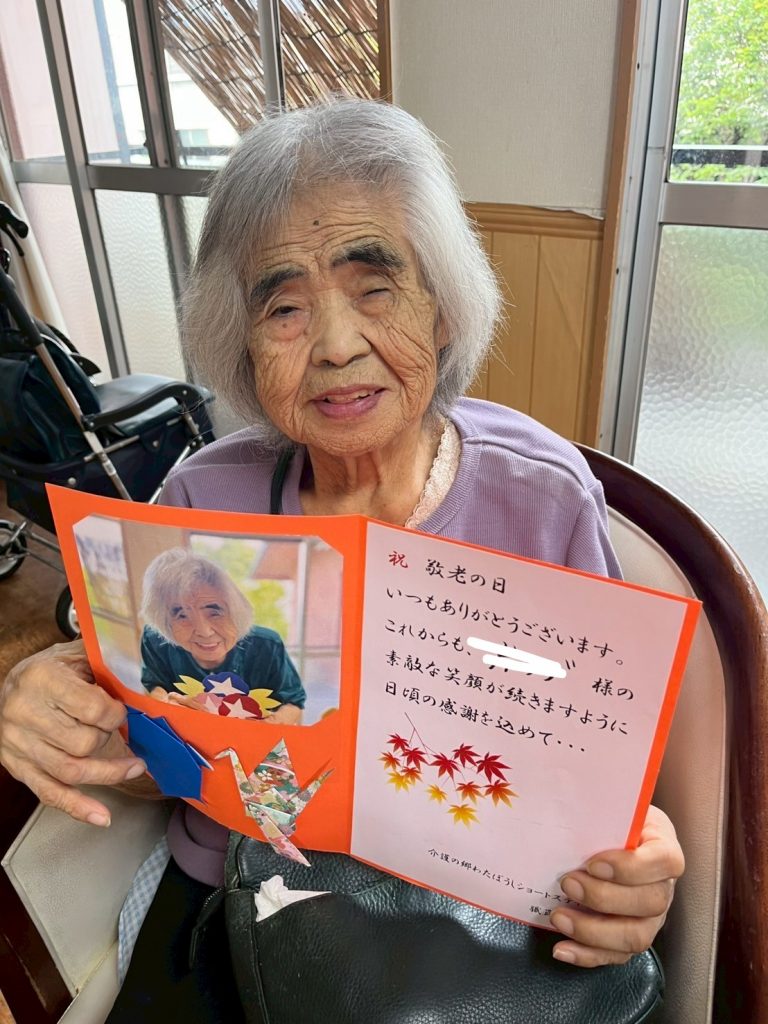 祝 敬老の日
いつもありがとうございます。
これからも、 様の
素敵な笑顔が続きますように
日頃の感謝を込めて・・・
介護の郷わたぼうしショートステイ